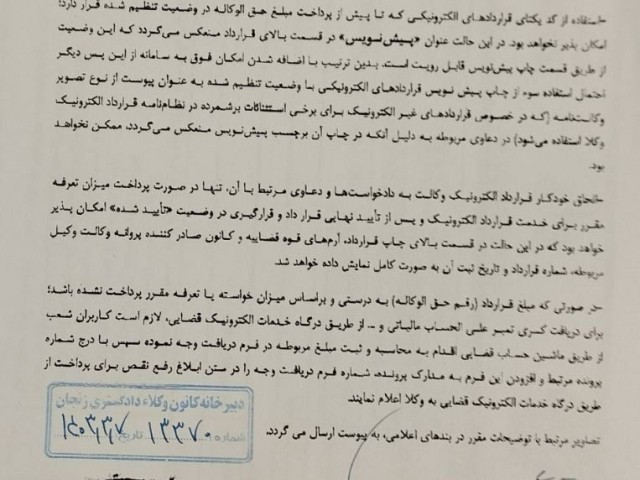 -استفاده از کد یکتای قراردادهای الکترونیکی که تا پیش از پرداخت مبلغ حق الوکاله در وضعیت تنظیم شده قرار دارد؛
امکان پذیر نخواهد بود. در این حالت عنوان «پیش‌نویس» در قسمت بالای قرارداد منعکس می‌گردد که این وضعیت
از طریق قسمت چاپ پیش‌نویس قابل رویت است. بدین ترتیب با اضافه شدن امکان فوق به سامانه از این پس دیگر
احتمال استفاده سوء از چاپ پیش نویس قراردادهای الکترونیکی با وضعیت تنظیم شده به عنوان پیوست از نوع تصویر
وکالت‌نامه (که در خصوص قراردادهای غیر الکترونیک برای برخی استثنائات برشمرده در نظام‌نامه قرارداد الکترونیک
وکلا استفاده می‌شود) در دعاوی مربوطه به دلیل آنکه در چاپ آن برچسب پیش‌نویس منعکس می‌گردد، ممکن نخواهد
بود.
-الحاق خودکار قرارداد الکترونیک وکالت به دادخواست‌ها و دعاوی مرتبط با آن، تنها در صورت پرداخت میزان تعرفه
مقرر برای خدمت قرارداد الکترونیک و پس از تأیید نهایی قرار داد و قرارگیری در وضعیت «تأیید شده» امکان پذیر
خواهد بود که در این حالت در قسمت بالای چاپ قرارداد، آرم‌های قوه قضاییه و کانون صادر کننده پروانه وکالت وکیل
مربوطه، شماره قرارداد و تاریخ ثبت آن به صورت کامل نمایش داده خواهد شد.
-در صورتی که مبلغ قرارداد (رقم حق الوکاله) به درستی و براساس میزان خواسته یا تعرفه مقرر پرداخت نشده باشد؛
برای دریافت کسری تمبر علی الحساب مالیاتی و ... از طریق درگاه خدمات الکترونیک قضایی، لازم است کاربران شعب
از طریق ماشین حساب قضایی اقدام به محاسبه و ثبت مبلغ مربوطه در فرم دریافت وجه نموده سپس با درج شماره
پرونده مرتبط و افزودن این فرم به مدارک پرونده، شماره فرم دریافت وجه را در متن ابلاغ رفع نقص برای پرداخت از
طریق درگاه خدمات الکترونیک قضایی به وکلا اعلام نمایند.
تصاویر مرتبط با توضیحات مقرر در بندهای اعلامی، به پیوست ارسال می گردد.
دبیرخانه کانون وکلاء دادگستری زنجان
شماره ۱۳۳۷۰ تاریخ ۱۴۰۳,۳,۷